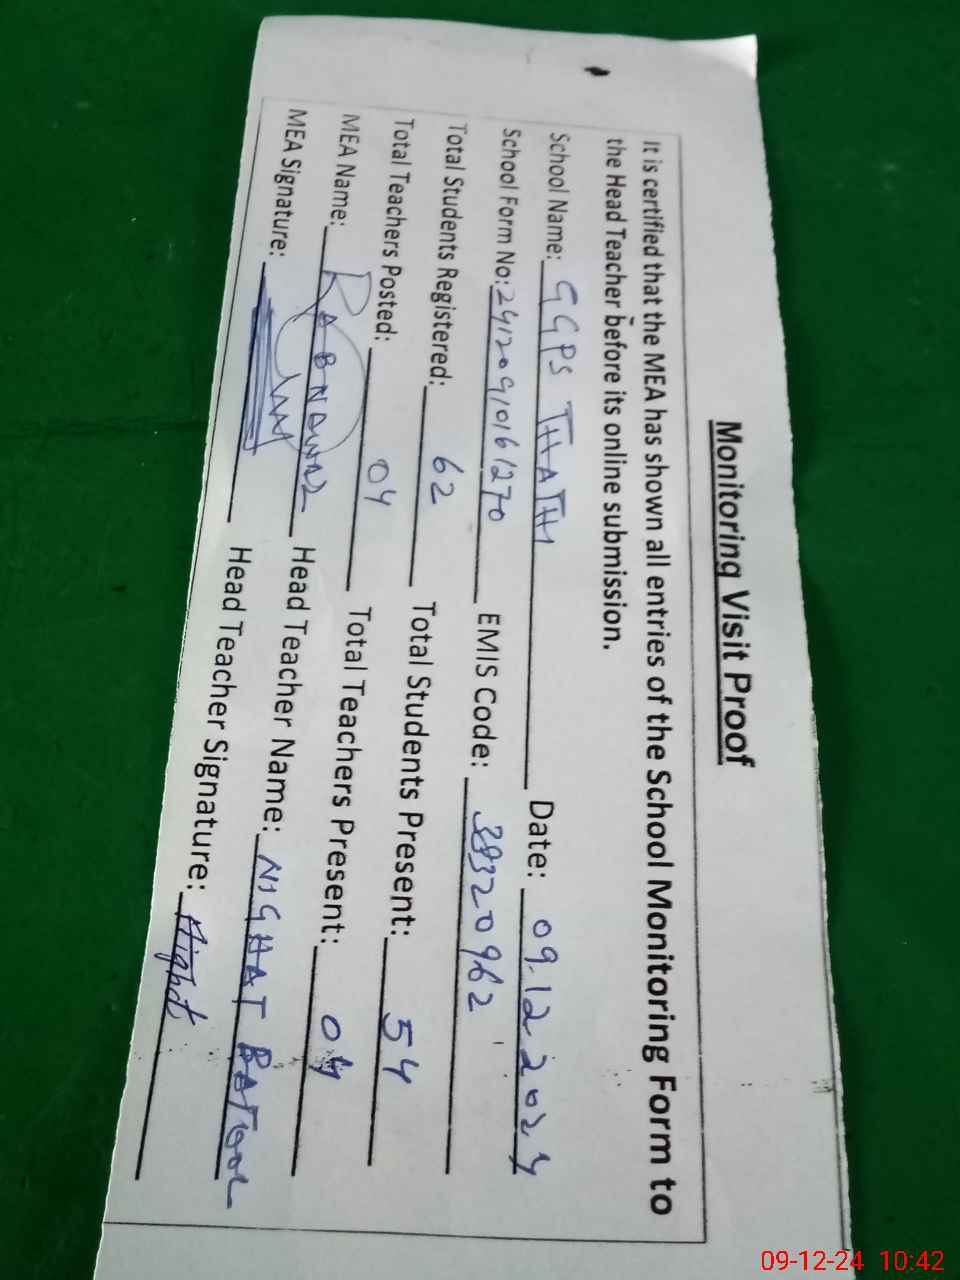 Monitoring Visit Proof
It is certified that the MEA has shown all entries of the School Monitoring Form to
the Head Teacher before its online submission.
School Name: GGPS THATHI Date: 09.12.2024
School Form No: 24120910161270 EMIS Code: 39320962
Total Students Registered: 62 Total Students Present: 54
Total Teachers Posted: 04 Total Teachers Present: 04
MEA Name: Head Teacher Name: NIGHAT BATOOL
MEA Signature: Head Teacher Signature: Nighat
09-12-24 10:42